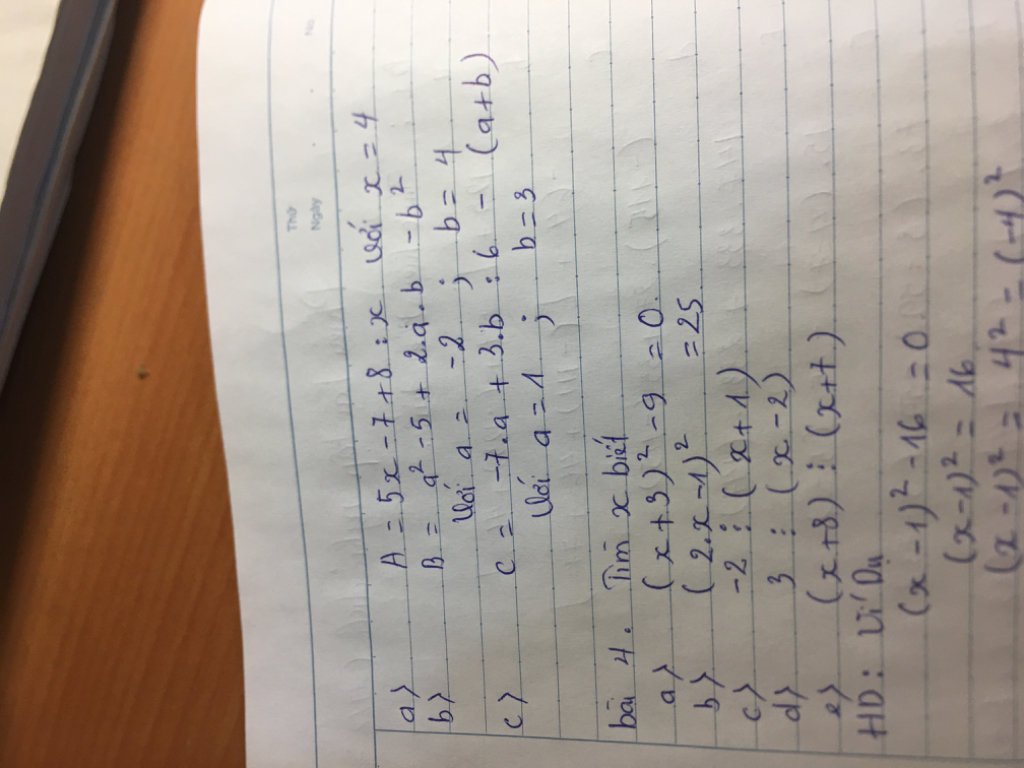 Thứ
Ngày
No
a> A = 5x - 7 + 8 : x với x = 4
b> B = a² - 5 + 2.a.b - b²
Với a = -2 ; b = 4
c> C = -7.a + 3.b : 6 - (a+b)
Với a = 1 ; b = 3
bài 4. Tìm x biết
a> (x+3)² - 9 = 0
b> (2.x - 1)² = 25
c> -2 ⋮ (x+1)
d> 3 ⋮ (x-2)
e> (x+8) ⋮ (x+7)
HD: Ví Dụ
(x-1)² - 16 = 0
(x-1)² = 16
(x-1)² = 4² = (-4)²